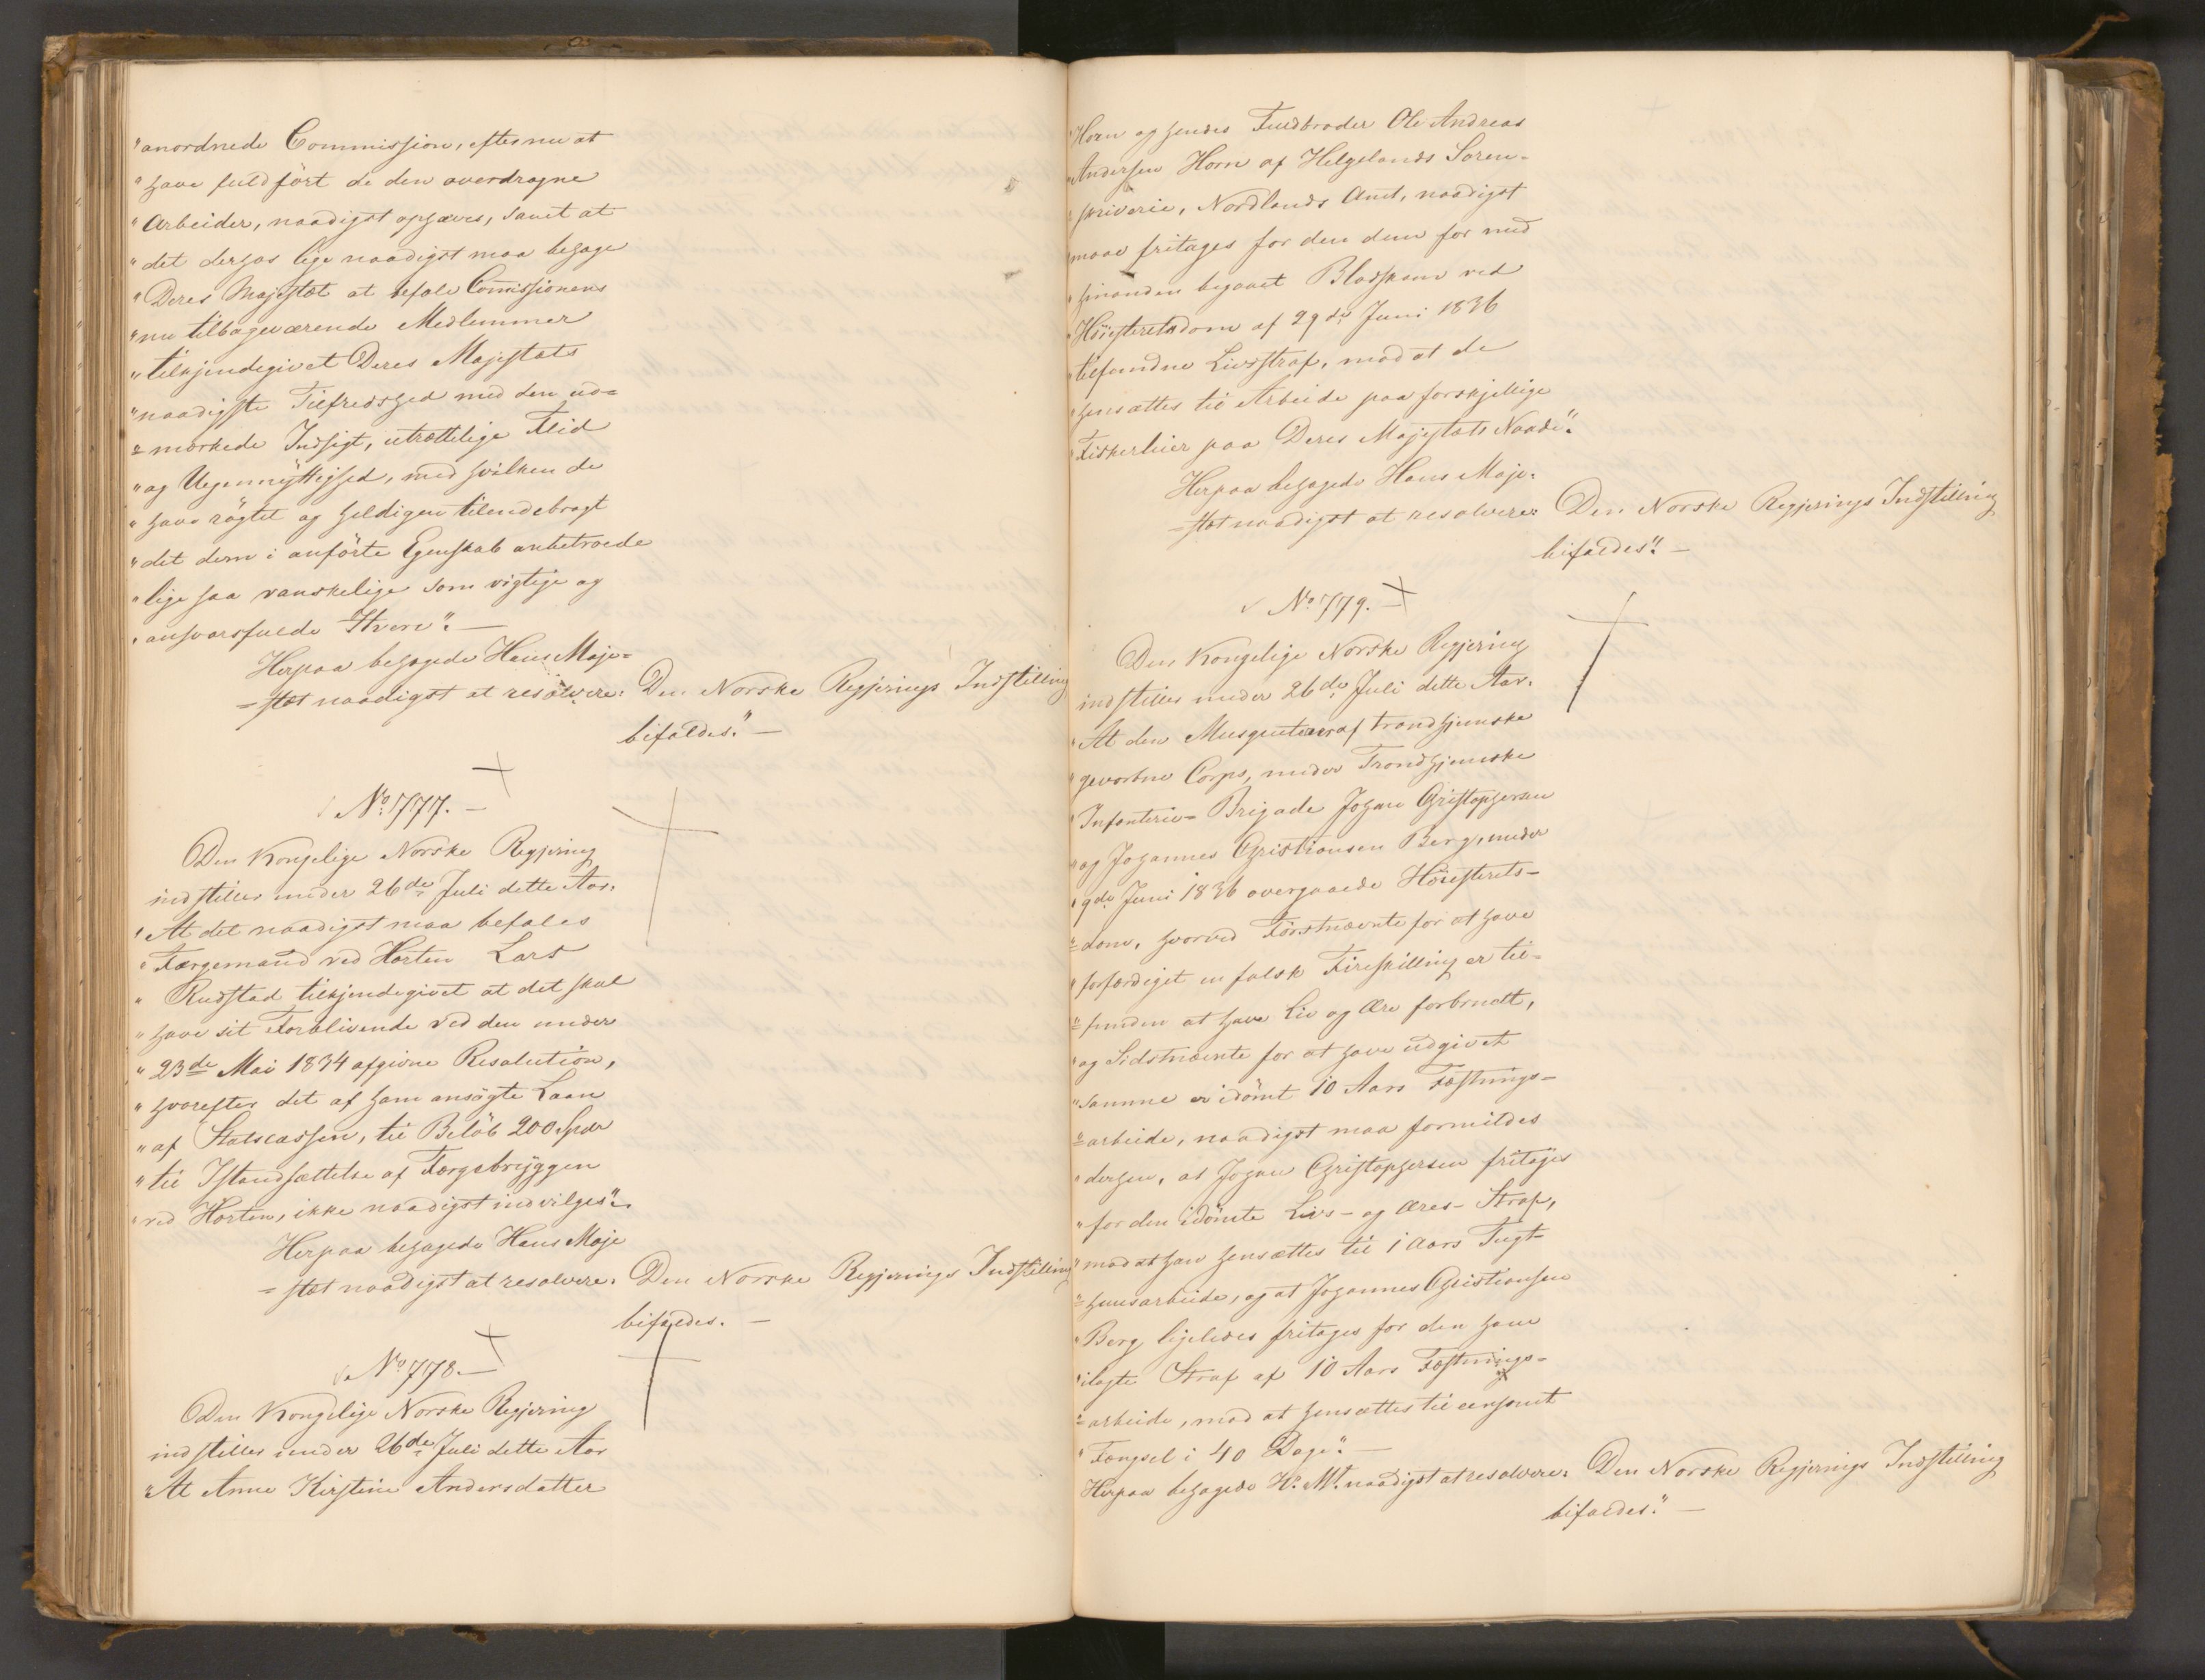 "anordnede Commission, efter nu at
"have fuldført de den overdragne
"Arbeider, naadigst ophæves, samt at
"det derhos lige naadigst maa behage
"Deres Majestæt at befale Commissionens
"nu tilbageværende Medlemmer
"tilkjendegivet Deres Majestæts
"naadigste Tilfredshed med den ud=
"=mærkede Indsigt, utrættelige Flid
"og Uegennyttighed, med hvilken de
"have røgtet og heldigen tilendebragt
"det dem i anførte Egenskab anbetroede
"lige saa vanskelige som vigtige og
"ansvarsfulde Hverv". —
Herpaa behagede Hans Maje=
=stæt naadigst at resolvere: Den Norske Regjerings Indstilling
bifaldes." —
No 777. —
Den Kongelige Norske Regjering
indstiller under 26de Juli dette Aar,
"At det naadigst maa befales
"Færgemand ved Horten Lars
"Rudstad tilkjendegivet at det skal
"have sit Forblivende ved den under
"23de Mai 1834 afgivne Resolution,
"hvorefter det af ham ansøgte Laan
"af Statscassen, til Beløb 200 Spdr
"til Istandsættelse af Færgebryggen
"ved Horten, ikke naadigst indvilges".
Herpaa behagede Hans Maje
=stæt naadigst at resolvere: Den Norske Regjerings Indstilling
bifaldes. —
No 778. —
Den Kongelige Norske Regjering
indstiller under 26de Juli dette Aar
"At Anne Kirstine Andersdatter
"Horn og hendes Fuldbroder Ole Andreas
"Andersen Horn af Helgelands Soren=
"=skriverie, Nordlands Amt, naadigst
"maae fritages for den dem for med
"hinanden begaaet Blodskam ved
"Høiesteretsdom af 29de Juni 1836
"tilfundne Livsstraf, mod at de
"hensættes til Arbeide paa forskjellige
"Fiskerleier paa Deres Majestæts Naade".
Herpaa behagede Hans Maje=
=stæt naadigst at resolvere: Den Norske Regjerings Indstilling
bifaldes". —
No 779. —
Den Kongelige Norske Regjering
indstiller under 26de Juli dette Aar.
"At den Musqueteer af trondhjemske
"gevorbne Corps, under Trondhjemske
"Infanterie=Brigade Johan Christophersen
"og Johannes Christiansen Berg, under
"9de Juni 1836 overgaaede Høiesterets=
"=dom, hvorved Førstnævnte for at have
"forfærdiget en falsk Fireskilling er til=
"=funden at have Liv og Ære forbrudt,
"og Sidstnævnte for at have udgivet
"samme er idømt 10 Aars Fæstnings=
"=arbeide, naadigst maa formildes
"derhen, at Johan Christophersen fritages
"for den idømte Livs- og Æres-Straf,
"mod at han hensættes til 1 Aars Tugt=
"=huusarbeide, og at Johannes Christiansen
"Berg ligeledes fritages for den ham
"ilagte Straf af 10 Aars Fæstnings=
"=arbeide, mod at hensættes til eensomt
"Fængsel i 40 Dage". —
Herpaa behagede Hs. Mt. naadigst at resolvere: Den Norske Regjerings Indstilling
bifaldes." —